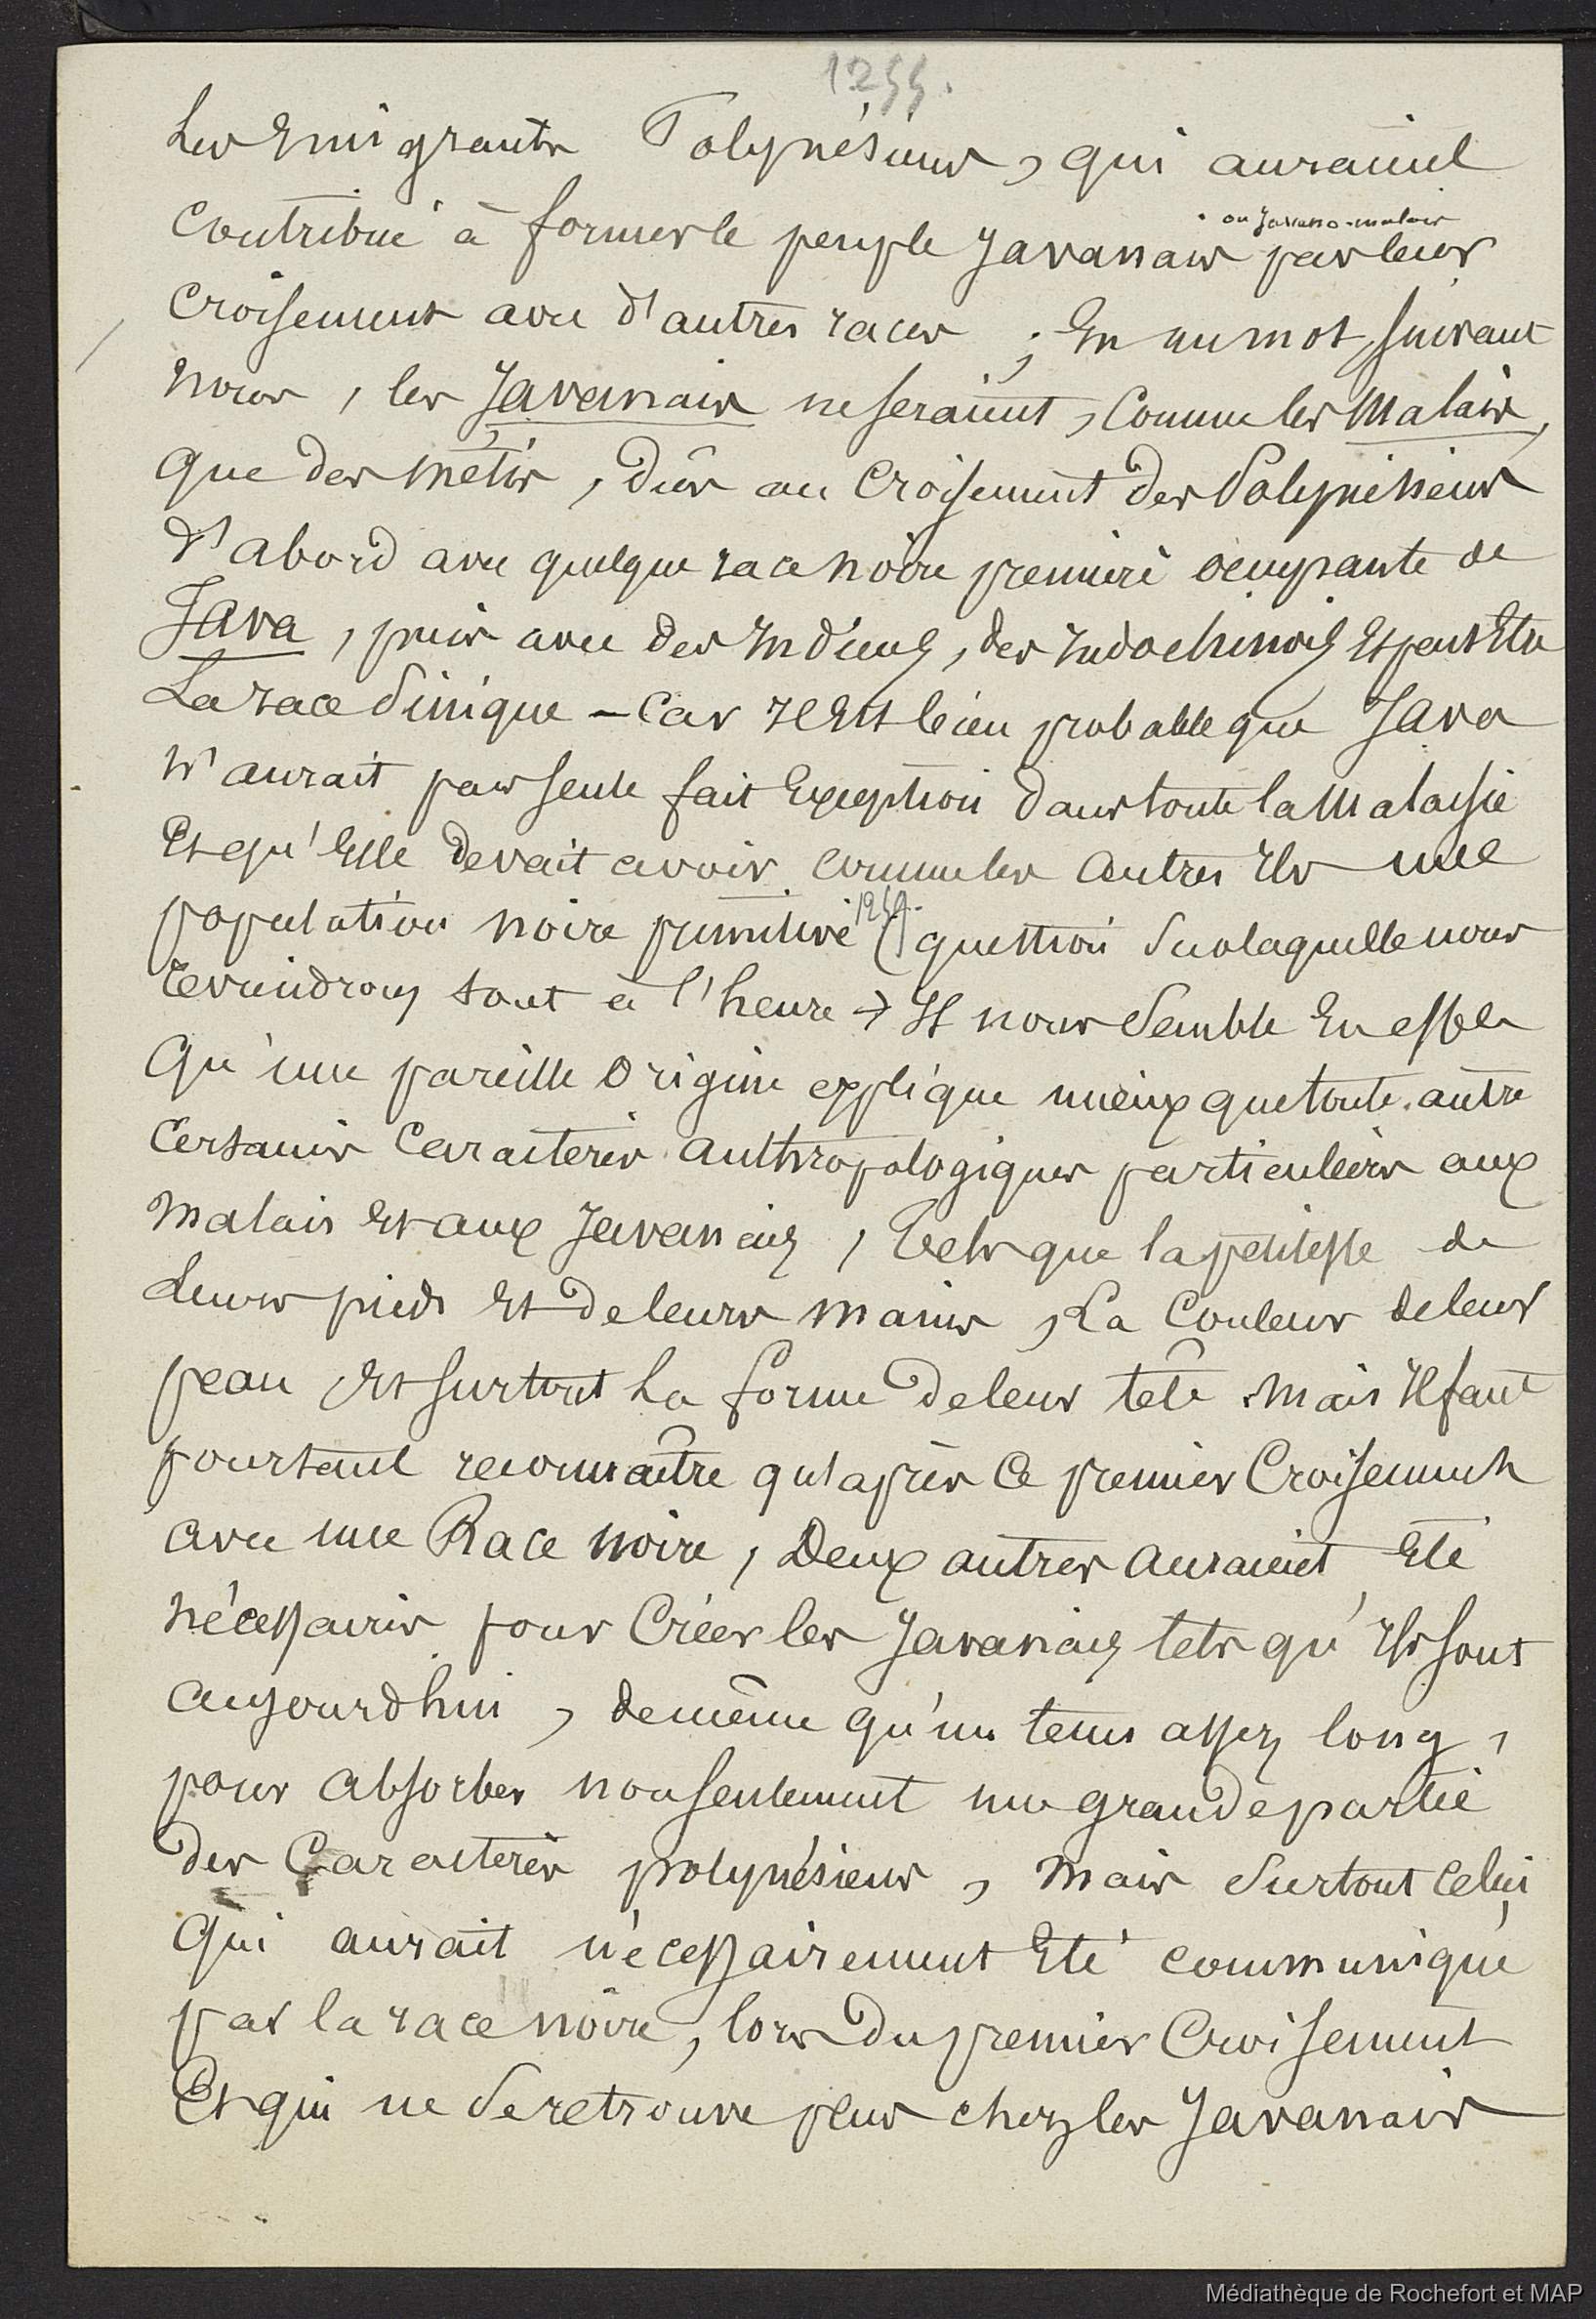 1255.
Les Emigrants Polynésiens, qui auraient
contribué à former le peuple Javanais ou Javano-malais par leur
croisement avec d'autres races ; En un mot, suivant
nous, les Javanais ne seraient, comme les Malais,
que des métis, dûs au croisement des Polynésiens
d'abord avec quelque race noire première occupante de
Java, puis avec des Indiens, des Indochinois Et peut Etre
La race Sinique – Car Il Est bien probable que Java
n'aurait pas seule fait Exception dans toute la Malaisie
Et qu'Elle devait avoir comme les autres Iles une
population noire primitive ( question sur laquelle nous
reviendrons tout à l'heure ) Il nous semble En effet
Qu'une pareille Origine explique mieux que toute autre
Certains Caractères anthropologiques particuliers aux
Malais Et aux Javanais, tels que la petitesse de
Leurs pieds Et de leurs mains, La Couleur de leur
peau Et surtout La forme de leur tête. Mais Il faut
pourtant reconnaître qu'après ce premier Croisement
avec une Race noire, Deux autres auraient Eté
nécessaires pour Créer les Javanais tels qu'Ils sont
aujourdhui, de même qu'un tems assez long,
pour absorber non seulement une grande partie
des Caractères polynésiens, mais surtout celui
Qui aurait nécessairement Eté communiqué
par la race noire, lors du premier Croisement
Et qui ne se retrouve plus chez les Javanais
Médiathèque de Rochefort et MAP